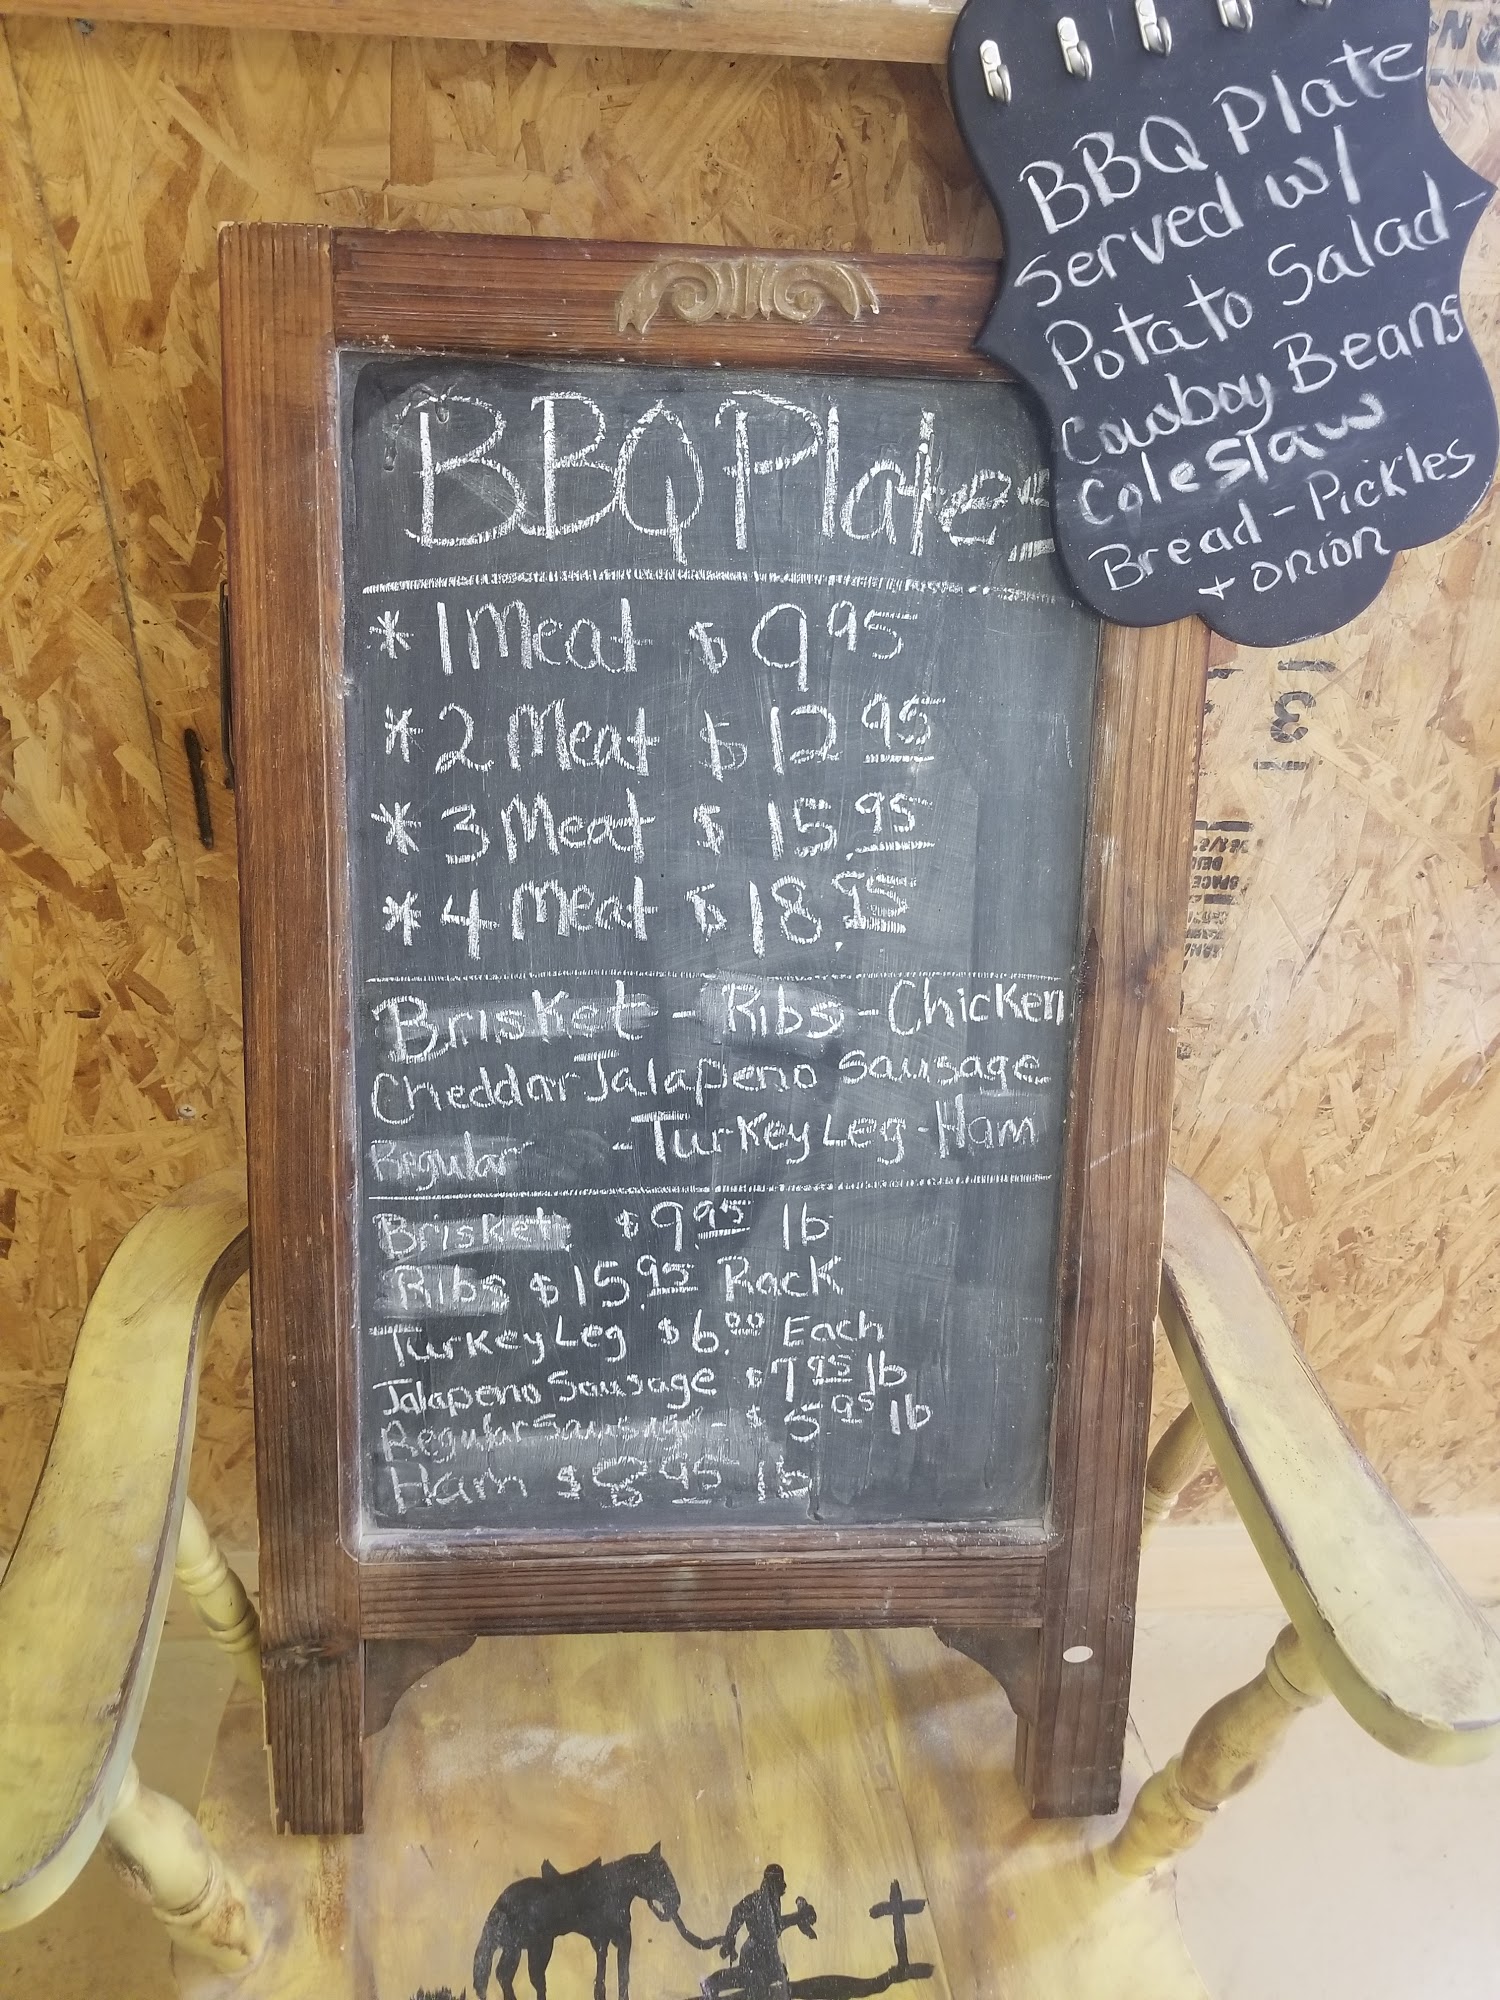 BBQ Plate
Served w/
Potato Salad -
Cowboy Beans
Coleslaw
Bread - Pickles
+ onion
BBQ Plates
* 1 Meat $ 9 95
* 2 Meat $ 12 95
* 3 Meat $ 15.95
* 4 Meat $ 18.95
Brisket - Ribs - Chicken
Cheddar Jalapeno Sausage
Regular - Turkey Leg - Ham
Brisket $9.95 lb
Ribs $15.95 Rack
Turkey Leg $6.00 Each
Jalapeno Sausage $7 95 lb
Regular Sausage - $ 5.95 lb
Ham $ 95 lb